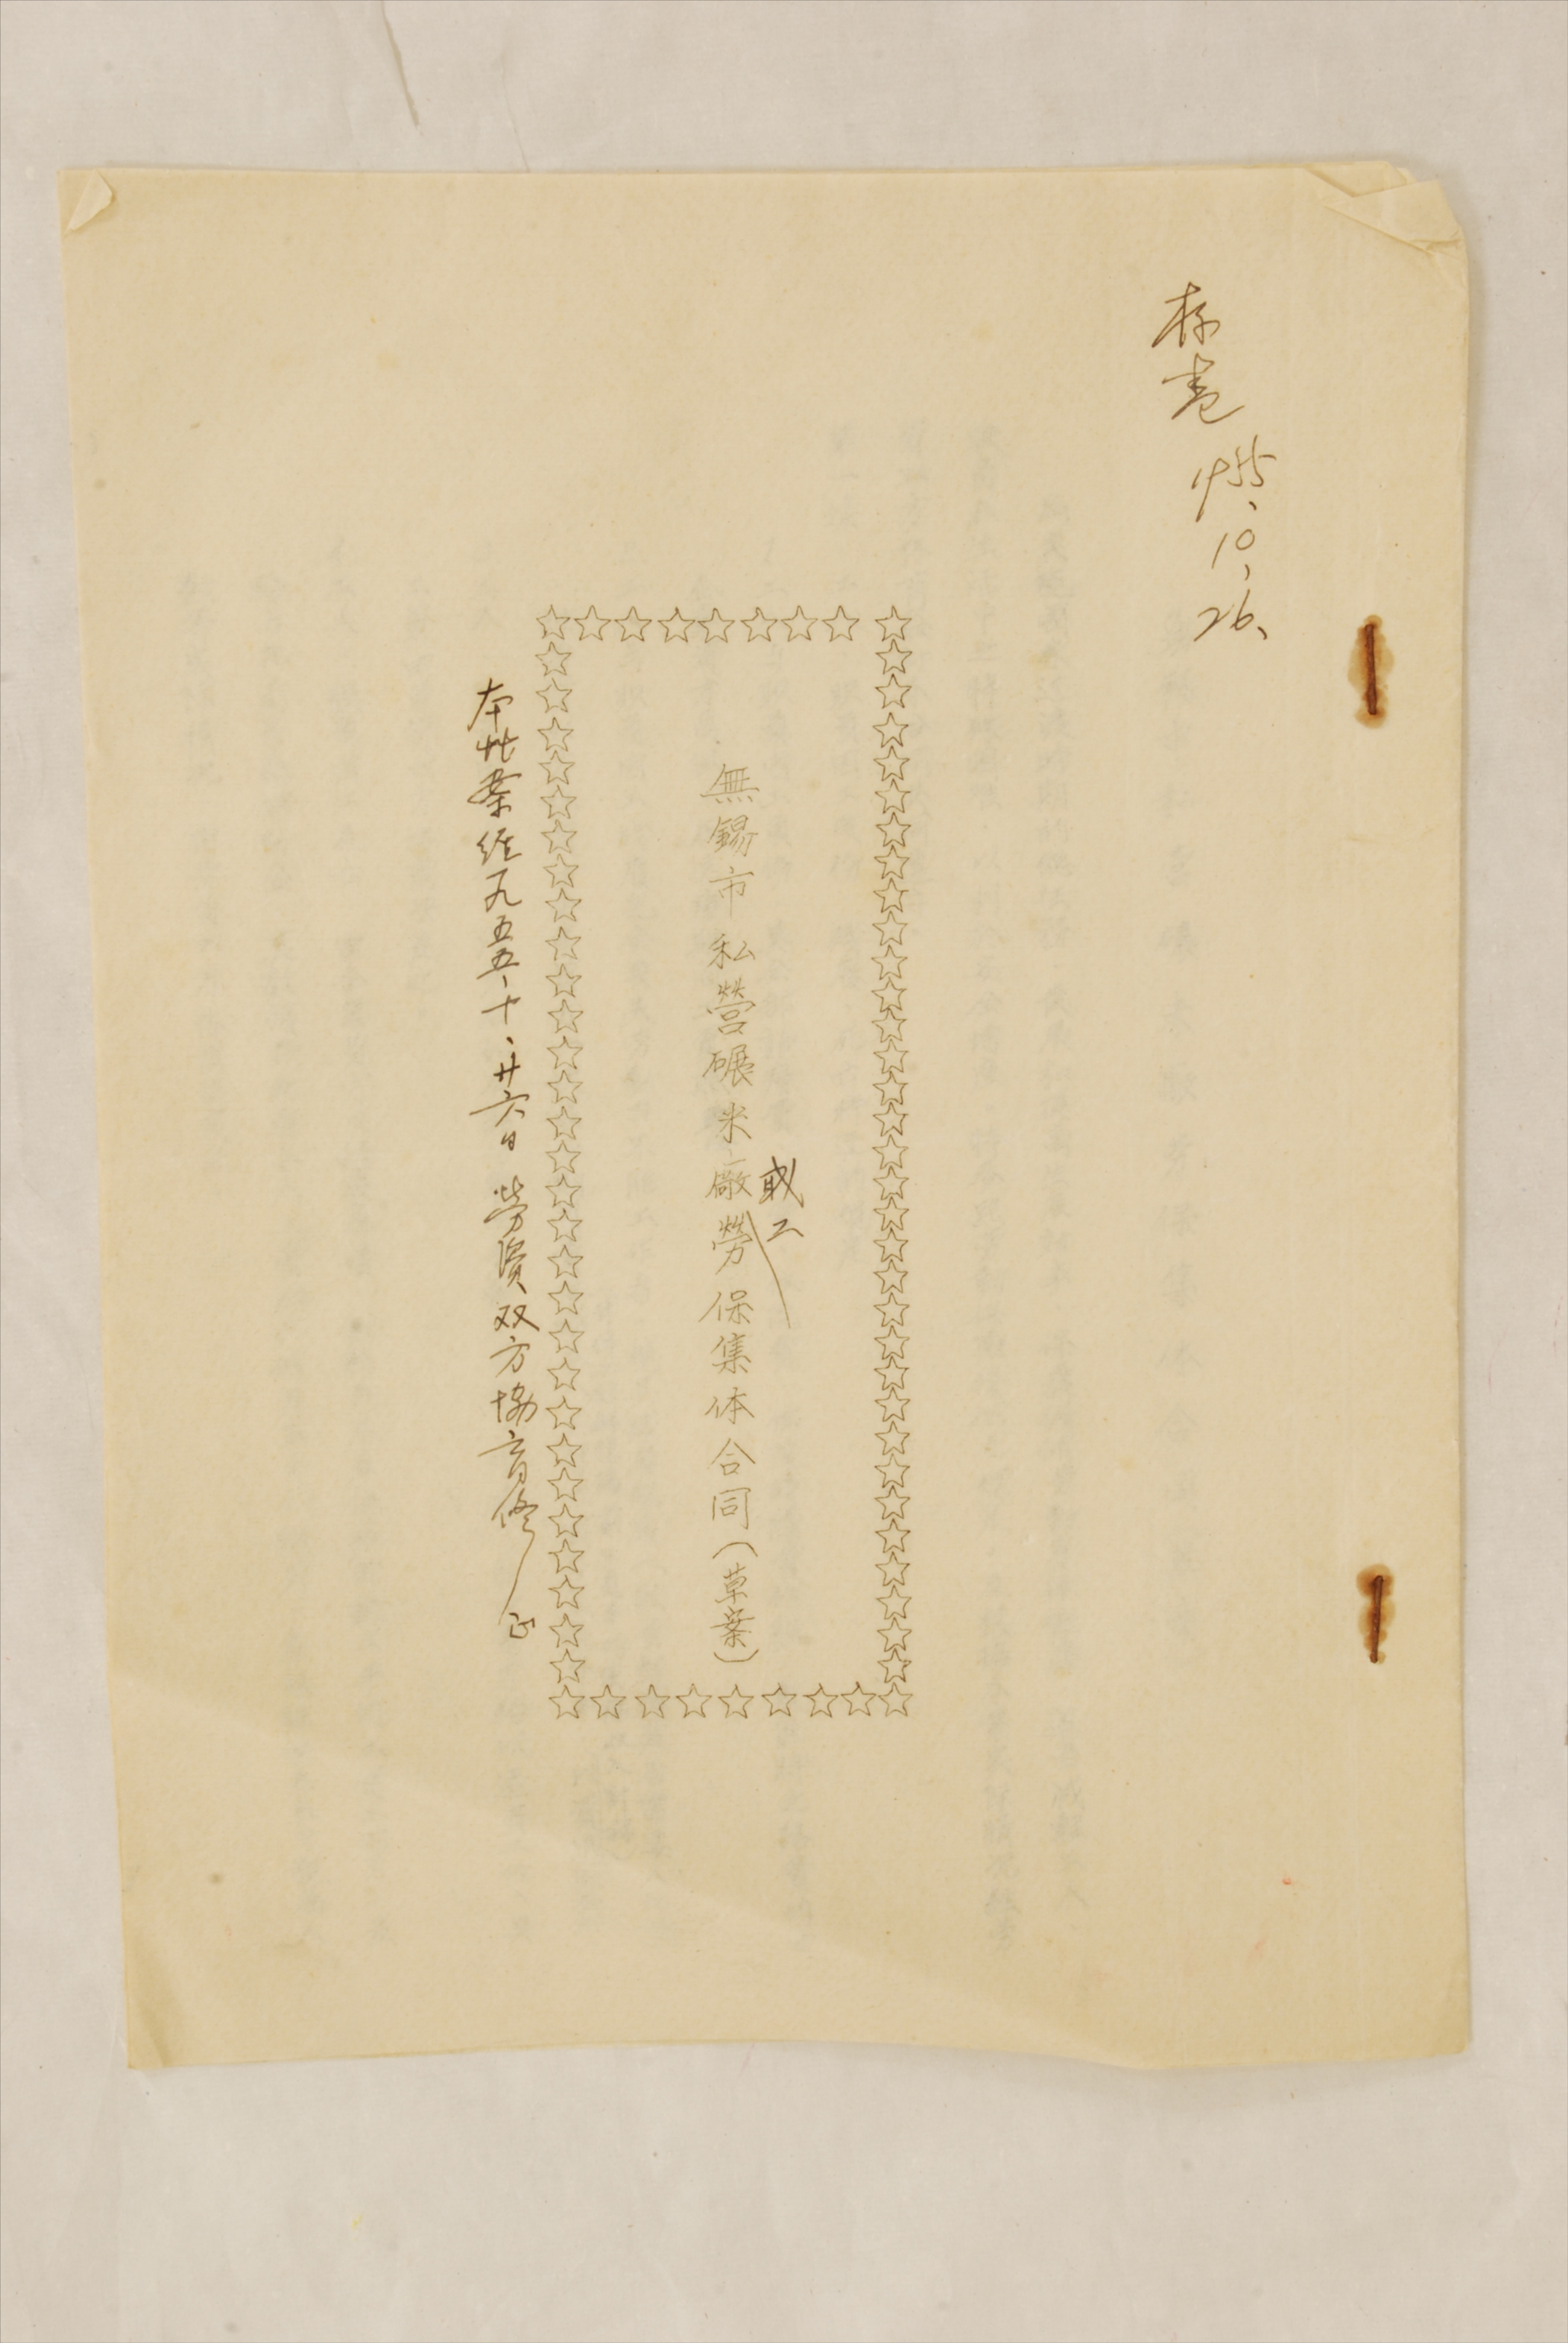 存卷 1955、10、26、
無錫市私營碾米廠职工勞保集体合同(草案)
本草案经一九五五、十、廿六日 勞資双方協商修正